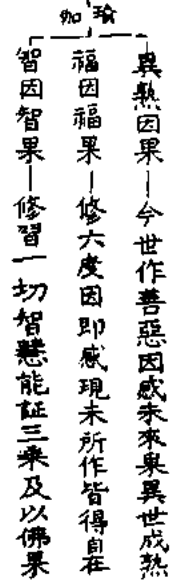 瑜伽
異熟因果—今世作善惡因感未來果異世成熟
福因福果—修六度因即感現未所作皆得自在
智因智果—修習一切智慧能証三乘及以佛果